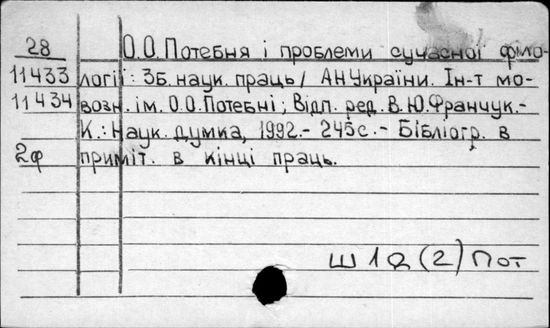 28 О.О. Потебня і проблеми сучасної філо-
11433 логії: Зб. наук. праць / АН України. Ін-т мо-
11434 возн. ім. О.О. Потебні; Відп. ред. В.Ю. Франчук.-
К.: Наук. думка, 1992.- 245с.- Бібліогр. в
2ф приміт. в кінці праць.
Ш1Я(2)Пот